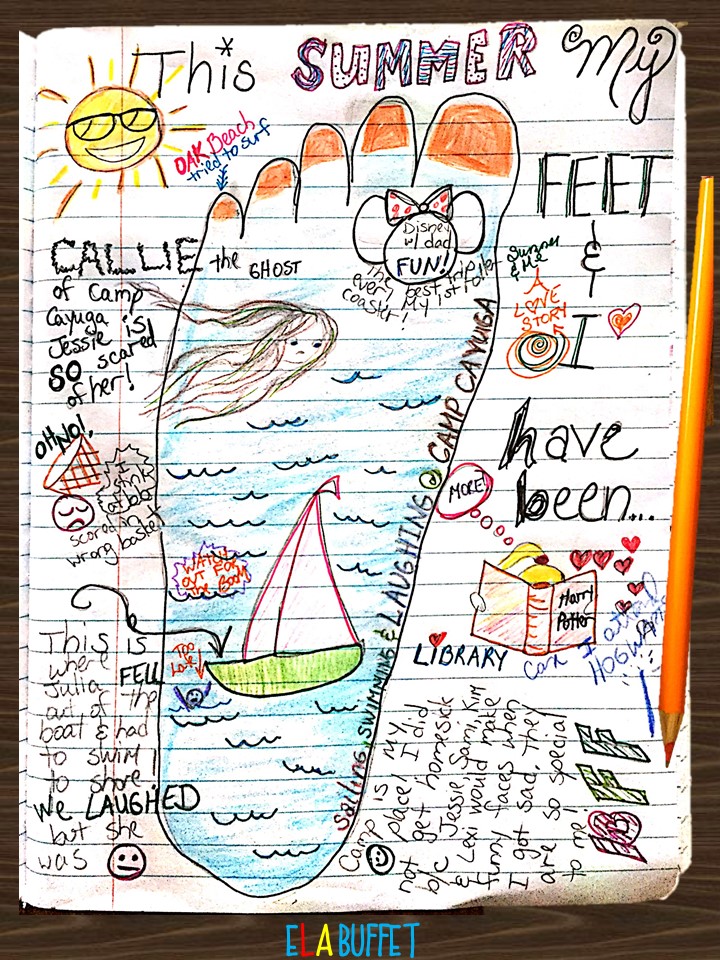 This SUMMER My
FEET
&
I
have
been...
OAK Beach
tried to surf
CALLIE the GHOST
of Camp
Cayuga is
Jessie is
SO scared
of her!
Disney
w/ dad
FUN!
The best trip
ever! My 1st roller
coaster!
Summer
& Me
A
LOVE
STORY
OH NO!
I
stink
@ bball
scored in
wrong basket
MORE!
WATCH
OUT FOR
the BOOM
Harry
Potter
LIBRARY
can I attend
HOGWARTS
Too
Late
This is
where
Julia FELL
out of the
boat & had
to swim
to shore!
We LAUGHED
but she
was
Sailing, SWIMMING & LAUGHING @ CAMP CAYUGA
Camp is my
place! I did
not get homesick
b/c Jessie, Sami, Kim
& Lexi would make
funny faces when
I got sad. They
are so special
to me!
BFF
ELA BUFFET